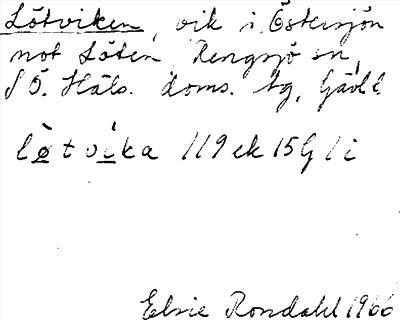 Lötviken, vik i Östersjön
mot Löten, Rengsjö sn,
SÖ. Häls. doms. tg, Gävl l
lø̀tvi̲ka 119 ek 15G 1 i
Elsie Rondahl 1966